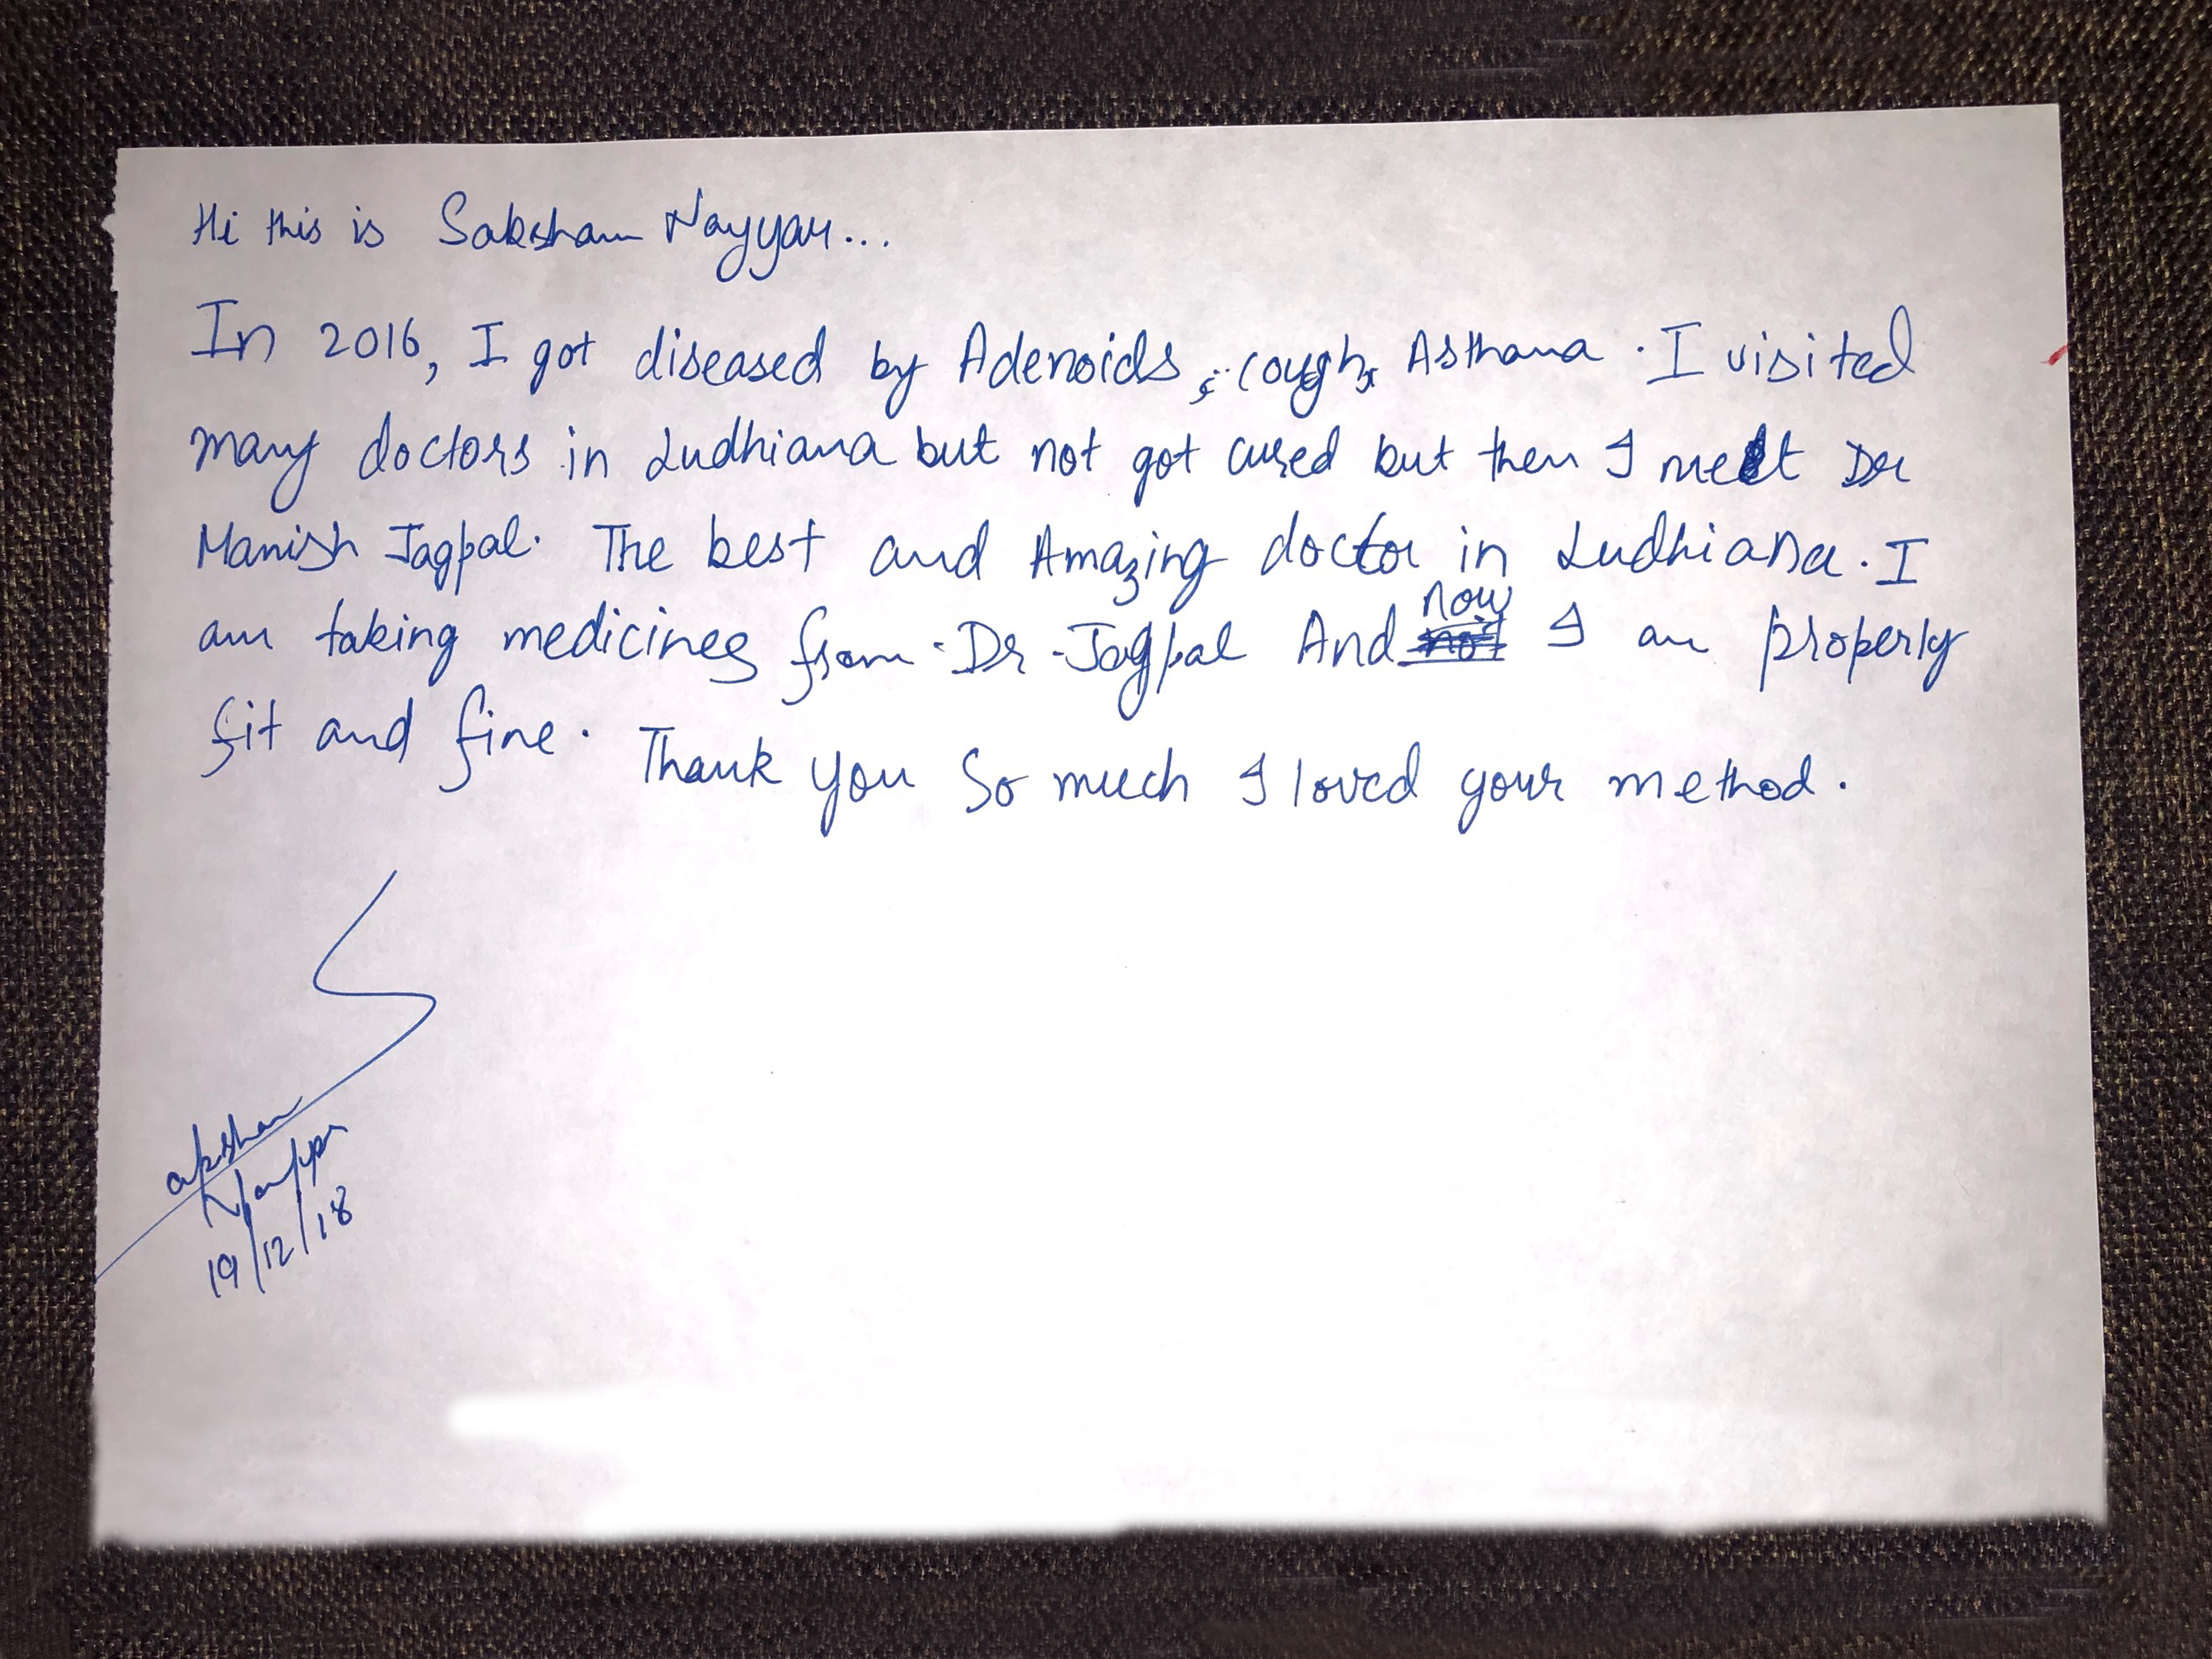 Hi this is Saksham Nayyar...
In 2016, I got diseased by Adenoids, cough, Asthama. I visited
many doctors in Ludhiana but not got cured but then I meet Dr
Manish Jagpal. The best and Amazing doctor in Ludhiana. I
am taking medicines from Dr Jagpal And now I am properly
fit and fine. Thank you So much I loved your method.
Sakshan
Nayyar
19/12/18